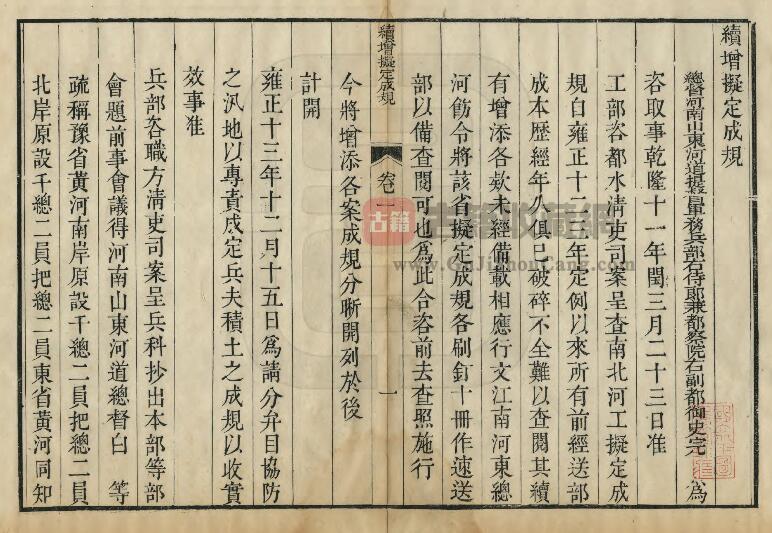 續增擬定成規
總督河南山東河道提督軍務兵部右侍郎兼都察院右副都御史完 為
咨取事乾隆十一年閏三月二十三日准
工部咨都水清吏司案呈查南北河工擬定成
規自雍正十二三年定例以來所有前經送部
成本歷經年久俱已破碎不全難以查閱其續
有增添各欵未經備載相應行文江南河東總
河飭令將該省擬定成規各刷釘十冊作速送
部以備查閱可也為此合咨前去查照施行
今將增添各案成規分晰開列於後
續增擬定成規 卷一 一
計開
雍正十三年十二月十五日為請分弁目協防
之汛地以專責成定兵夫積土之成規以收實
效事准
兵部咨職方清吏司案呈兵科抄出本部等部
會題前事會議得河南山東河道總督白 等
疏稱豫省黃河南岸原設千總二員把總二員
北岸原設千總二員把總二員東省黃河同知
古籍
古籍收藏網
www.GuJiShouCang.com